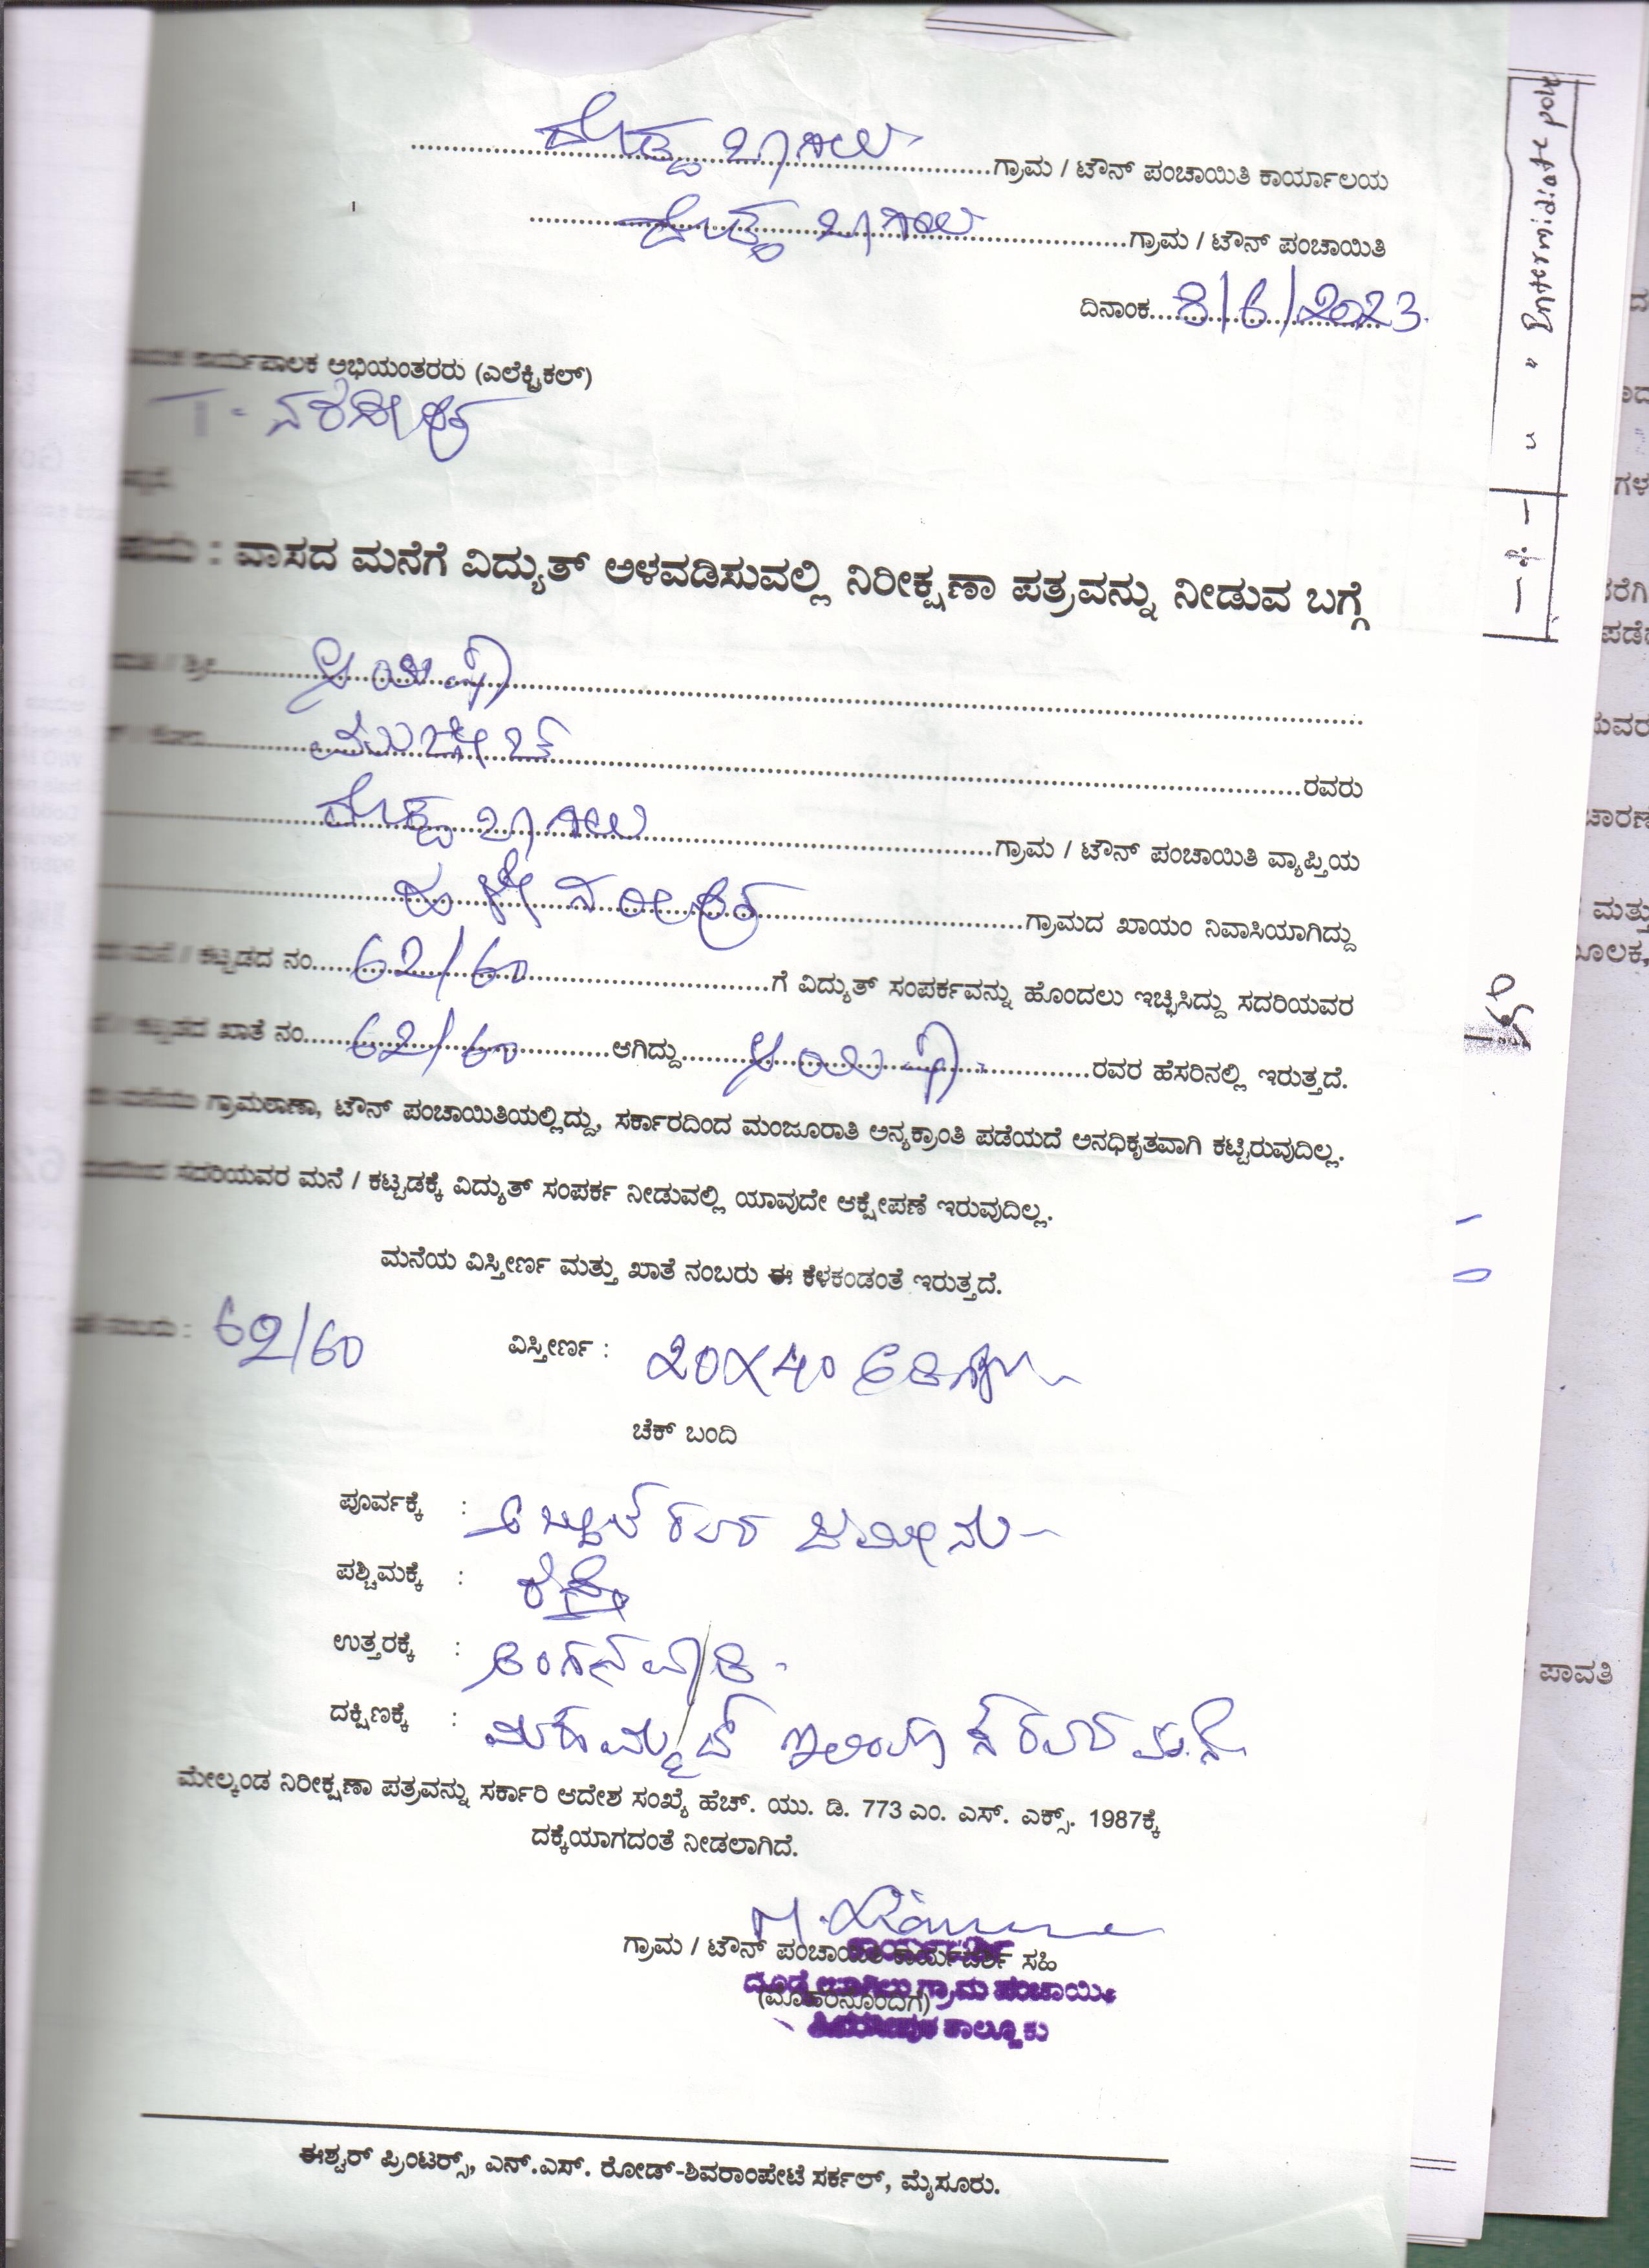 ದೊಡ್ಡ ಬಾಗಿಲು ಗ್ರಾಮ / ಟೌನ್ ಪಂಚಾಯಿತಿ ಕಾರ್ಯಾಲಯ
ದೊಡ್ಡ ಬಾಗಿಲು ಗ್ರಾಮ / ಟೌನ್ ಪಂಚಾಯಿತಿ
ದಿನಾಂಕ 8/6/2023.
ಕಾರ್ಯಪಾಲಕ ಅಭಿಯಂತರರು (ಎಲೆಕ್ಟ್ರಿಕಲ್)
T- ನರಸೀಪುರ
: ವಾಸದ ಮನೆಗೆ ವಿದ್ಯುತ್ ಅಳವಡಿಸುವಲ್ಲಿ ನಿರೀಕ್ಷಣಾ ಪತ್ರವನ್ನು ನೀಡುವ ಬಗ್ಗೆ
/ ಶ್ರೀ
ರವರು
ದೊಡ್ಡ ಬಾಗಿಲು ಗ್ರಾಮ / ಟೌನ್ ಪಂಚಾಯಿತಿ ವ್ಯಾಪ್ತಿಯ
ಗ್ರಾಮದ ಖಾಯಂ ನಿವಾಸಿಯಾಗಿದ್ದು
ಮನೆ / ಕಟ್ಟಡದ ನಂ. 62/60 ಗೆ ವಿದ್ಯುತ್ ಸಂಪರ್ಕವನ್ನು ಹೊಂದಲು ಇಚ್ಛಿಸಿದ್ದು ಸದರಿಯವರ
/ ಕಟ್ಟಡದ ಖಾತೆ ನಂ. 62/60 ಆಗಿದ್ದು ರವರ ಹೆಸರಿನಲ್ಲಿ ಇರುತ್ತದೆ.
ಮನೆಯು ಗ್ರಾಮಠಾಣಾ, ಟೌನ್ ಪಂಚಾಯಿತಿಯಲ್ಲಿದ್ದು, ಸರ್ಕಾರದಿಂದ ಮಂಜೂರಾತಿ ಅನ್ಯಕ್ರಾಂತಿ ಪಡೆಯದೆ ಅನಧಿಕೃತವಾಗಿ ಕಟ್ಟಿರುವುದಿಲ್ಲ.
ಸದರಿಯವರ ಮನೆ / ಕಟ್ಟಡಕ್ಕೆ ವಿದ್ಯುತ್ ಸಂಪರ್ಕ ನೀಡುವಲ್ಲಿ ಯಾವುದೇ ಆಕ್ಷೇಪಣೆ ಇರುವುದಿಲ್ಲ.
ಮನೆಯ ವಿಸ್ತೀರ್ಣ ಮತ್ತು ಖಾತೆ ನಂಬರು ಈ ಕೆಳಕಂಡಂತೆ ಇರುತ್ತದೆ.
ನಂಬರು : 62/60 ವಿಸ್ತೀರ್ಣ : 20X40 ಅಡಿಗಳು
ಚೆಕ್ ಬಂದಿ
ಪೂರ್ವಕ್ಕೆ : ರವರ ಜಮೀನು
ಪಶ್ಚಿಮಕ್ಕೆ : ರಸ್ತೆ
ಉತ್ತರಕ್ಕೆ : ಅಂಗನವಾಡಿ.
ದಕ್ಷಿಣಕ್ಕೆ : ಮಹಮ್ಮದ್ ಇಲಿಯಾಸ್ ರವರ ಮನೆ.
ಮೇಲ್ಕಂಡ ನಿರೀಕ್ಷಣಾ ಪತ್ರವನ್ನು ಸರ್ಕಾರಿ ಆದೇಶ ಸಂಖ್ಯೆ ಹೆಚ್. ಯು. ಡಿ. 773 ಎಂ. ಎಸ್. ಎಕ್ಸ್. 1987ಕ್ಕೆ
ದಕ್ಕೆಯಾಗದಂತೆ ನೀಡಲಾಗಿದೆ.
ಗ್ರಾಮ / ಟೌನ್ ಪಂಚಾಯಿತಿ ಕಾರ್ಯದರ್ಶಿ ಸಹಿ
(ಮೊಹರಿನೊಂದಿಗೆ)
ದೊಡ್ಡಬಾಗಿಲು ಗ್ರಾಮ ಪಂಚಾಯಿತಿ
ತಾಲ್ಲೂಕು
ಈಶ್ವರ್ ಪ್ರಿಂಟರ್ಸ್, ಎನ್.ಎಸ್. ರೋಡ್-ಶಿವರಾಂಪೇಟೆ ಸರ್ಕಲ್, ಮೈಸೂರು.
" " Intermidiate pole
ಮತ್ತು
ಪಾವತಿ